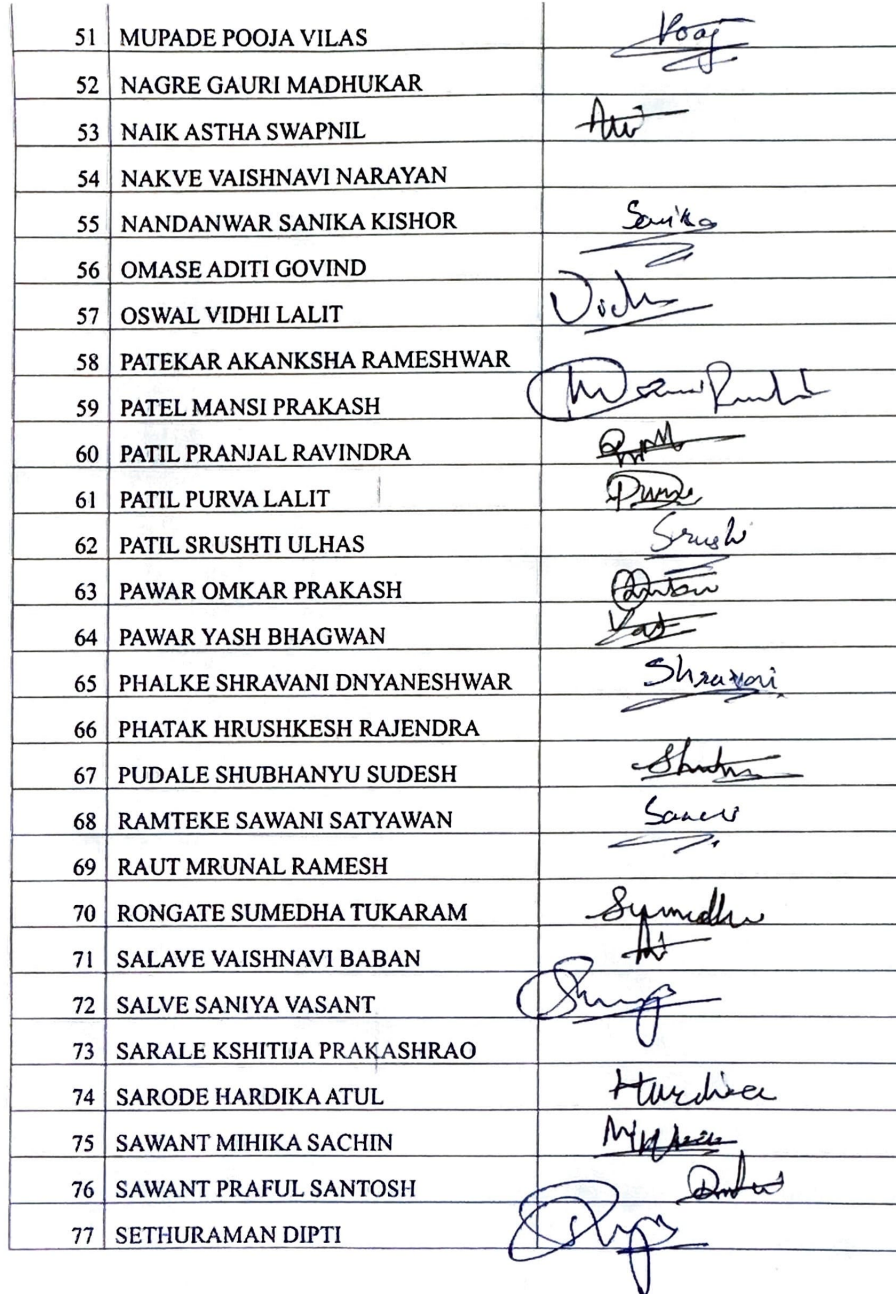 51 MUPADE POOJA VILAS Pooj
52 NAGRE GAURI MADHUKAR
53 NAIK ASTHA SWAPNIL
54 NAKVE VAISHNAVI NARAYAN
55 NANDANWAR SANIKA KISHOR Sanika
56 OMASE ADITI GOVIND
57 OSWAL VIDHI LALIT
58 PATEKAR AKANKSHA RAMESHWAR
59 PATEL MANSI PRAKASH
60 PATIL PRANJAL RAVINDRA
61 PATIL PURVA LALIT
62 PATIL SRUSHTI ULHAS
63 PAWAR OMKAR PRAKASH
64 PAWAR YASH BHAGWAN
65 PHALKE SHRAVANI DNYANESHWAR Shravani
66 PHATAK HRUSHKESH RAJENDRA
67 PUDALE SHUBHANYU SUDESH
68 RAMTEKE SAWANI SATYAWAN
69 RAUT MRUNAL RAMESH
70 RONGATE SUMEDHA TUKARAM Sumedha
71 SALAVE VAISHNAVI BABAN
72 SALVE SANIYA VASANT
73 SARALE KSHITIJA PRAKASHRAO
74 SARODE HARDIKA ATUL
75 SAWANT MIHIKA SACHIN
76 SAWANT PRAFUL SANTOSH
77 SETHURAMAN DIPTI